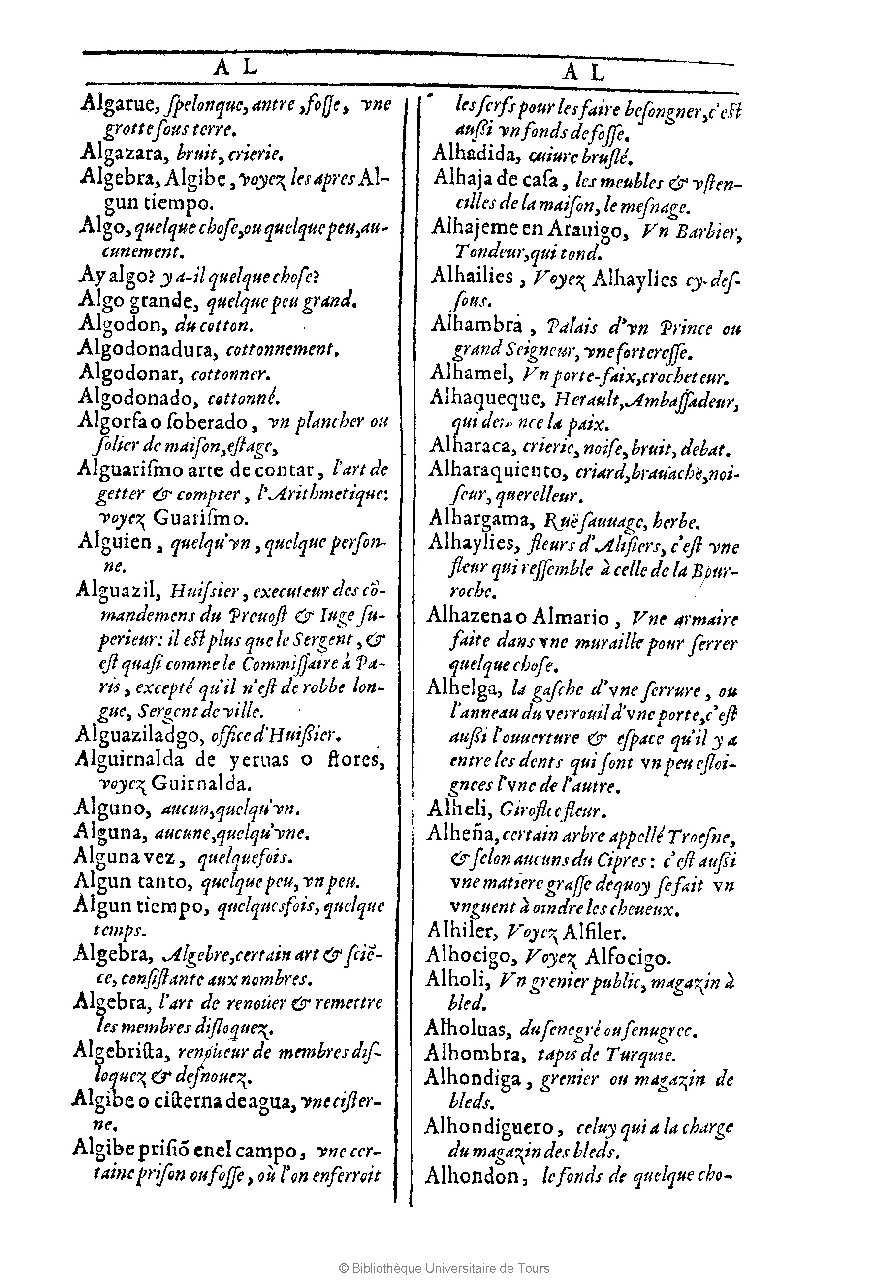 A L
Algarue, ſpelonque, antre, foſſe, vne
grotte ſous terre.
Algazara, bruit, crierie.
Algebra, Algibe, voyez les apres Al-
gun tiempo.
Algo, quelque choſe, ou quelque peu, au-
cunement.
Ay algo? y a-il quelque choſe?
Algo grande, quelque peu grand.
Algodon, du cotton.
Algodonadura, cottonnement.
Algodonar, cottonner.
Algodonado, cottonné.
Algorfa o ſoberado, vn plancher ou
ſolier de maiſon, eſtage,
Alguariſmo arte de contar, l'art de
getter & compter, l'Arithmetique:
voyez Guariſmo.
Alguien, quelqu'vn, quelque perſon-
ne.
Alguazil, Huiſsier, executeur des cõ-
mandemens du Preuoſt & Iuge ſu-
perieur: il eſt plus que le Sergent, &
eſt quaſi comme le Commiſſaire à Pa-
ris, excepté qu'il n'eſt de robbe lon-
gue, Sergent de ville.
Alguaziladgo, office d'Huiſsier.
Alguirnalda de yeruas o flores,
voyez Guirnalda.
Alguno, aucun, quelqu'vn.
Alguna, aucune, quelqu'vne.
Alguna vez, quelquefois.
Algun tanto, quelque peu, vn peu.
Algun tiempo, quelquesfois, quelque
temps.
Algebra, Algebre, certain art & ſciẽ-
ce, conſiſtante aux nombres.
Algebra, l'art de renoüer & remettre
les membres diſloquez.
Algebriſta, renoüeur de membres diſ-
loquez & deſnouez.
Algibe o ciſterna de agua, vne ciſter-
ne.
Algibe priſiõ enel campo, vne cer-
taine priſon ou foſſe, où l'on enferroit
A L
les ſerfs pour les faire beſongner, c'eſt
auſsi vn fonds de foſſe.
Alhadida, cuiure bruſlé.
Alhaja de caſa, les meubles & vſten-
cilles de la maiſon, le meſnage.
Alhajeme en Arauigo, Vn Barbier,
Tondeur, qui tond.
Alhailies, Voyez Alhaylies cy-deſ-
ſous.
Alhambra, Palais d'vn Prince ou
grand Seigneur, vne fortereſſe.
Alhamel, Vn porte-faix, crocheteur.
Alhaqueque, Herault, Ambaſſadeur,
qui nce la paix.
Alharaca, crierie, noiſe, bruit, debat.
Alharaquiento, criard, brauache, noi-
ſeur, querelleur.
Alhargama, Ruë ſauuage, herbe.
Alhaylies, fleurs d'Aliſiers, c'eſt vne
fleur qui reſſemble à celle de la Bour-
roche.
Alhazena o Almario, Vne armaire
faite dans vne muraille pour ſerrer
quelque choſe.
Alhelga, la gaſche d'vne ſerrure, ou
l'anneau du verrouil d'vne porte, c'eſt
auſsi l'ouuerture & eſpace qu'il y a
entre les dents qui ſont vn peu eſloi-
gnees l'vne de l'autre.
Alheli, Giroflee fleur.
Alheña, certain arbre appellé Troeſne,
& ſelon aucuns du Cipres: c'eſt auſsi
vne matiere graſſe dequoy ſe fait vn
vnguent à oindre les cheueux.
Alhiler, Voyez Alfiler.
Alhocigo, Voyez Alfocigo.
Alholi, Vn grenier public, magazin à
bled.
Alholuas, du ſenegré ou fenugrec.
Alhombra, tapis de Turquie.
Alhondiga, grenier ou magazin de
bleds.
Alhondiguero, celuy qui a la charge
du magazin des bleds.
Alhondon, le fonds de quelque cho-
© Bibliothèque Universitaire de Tours